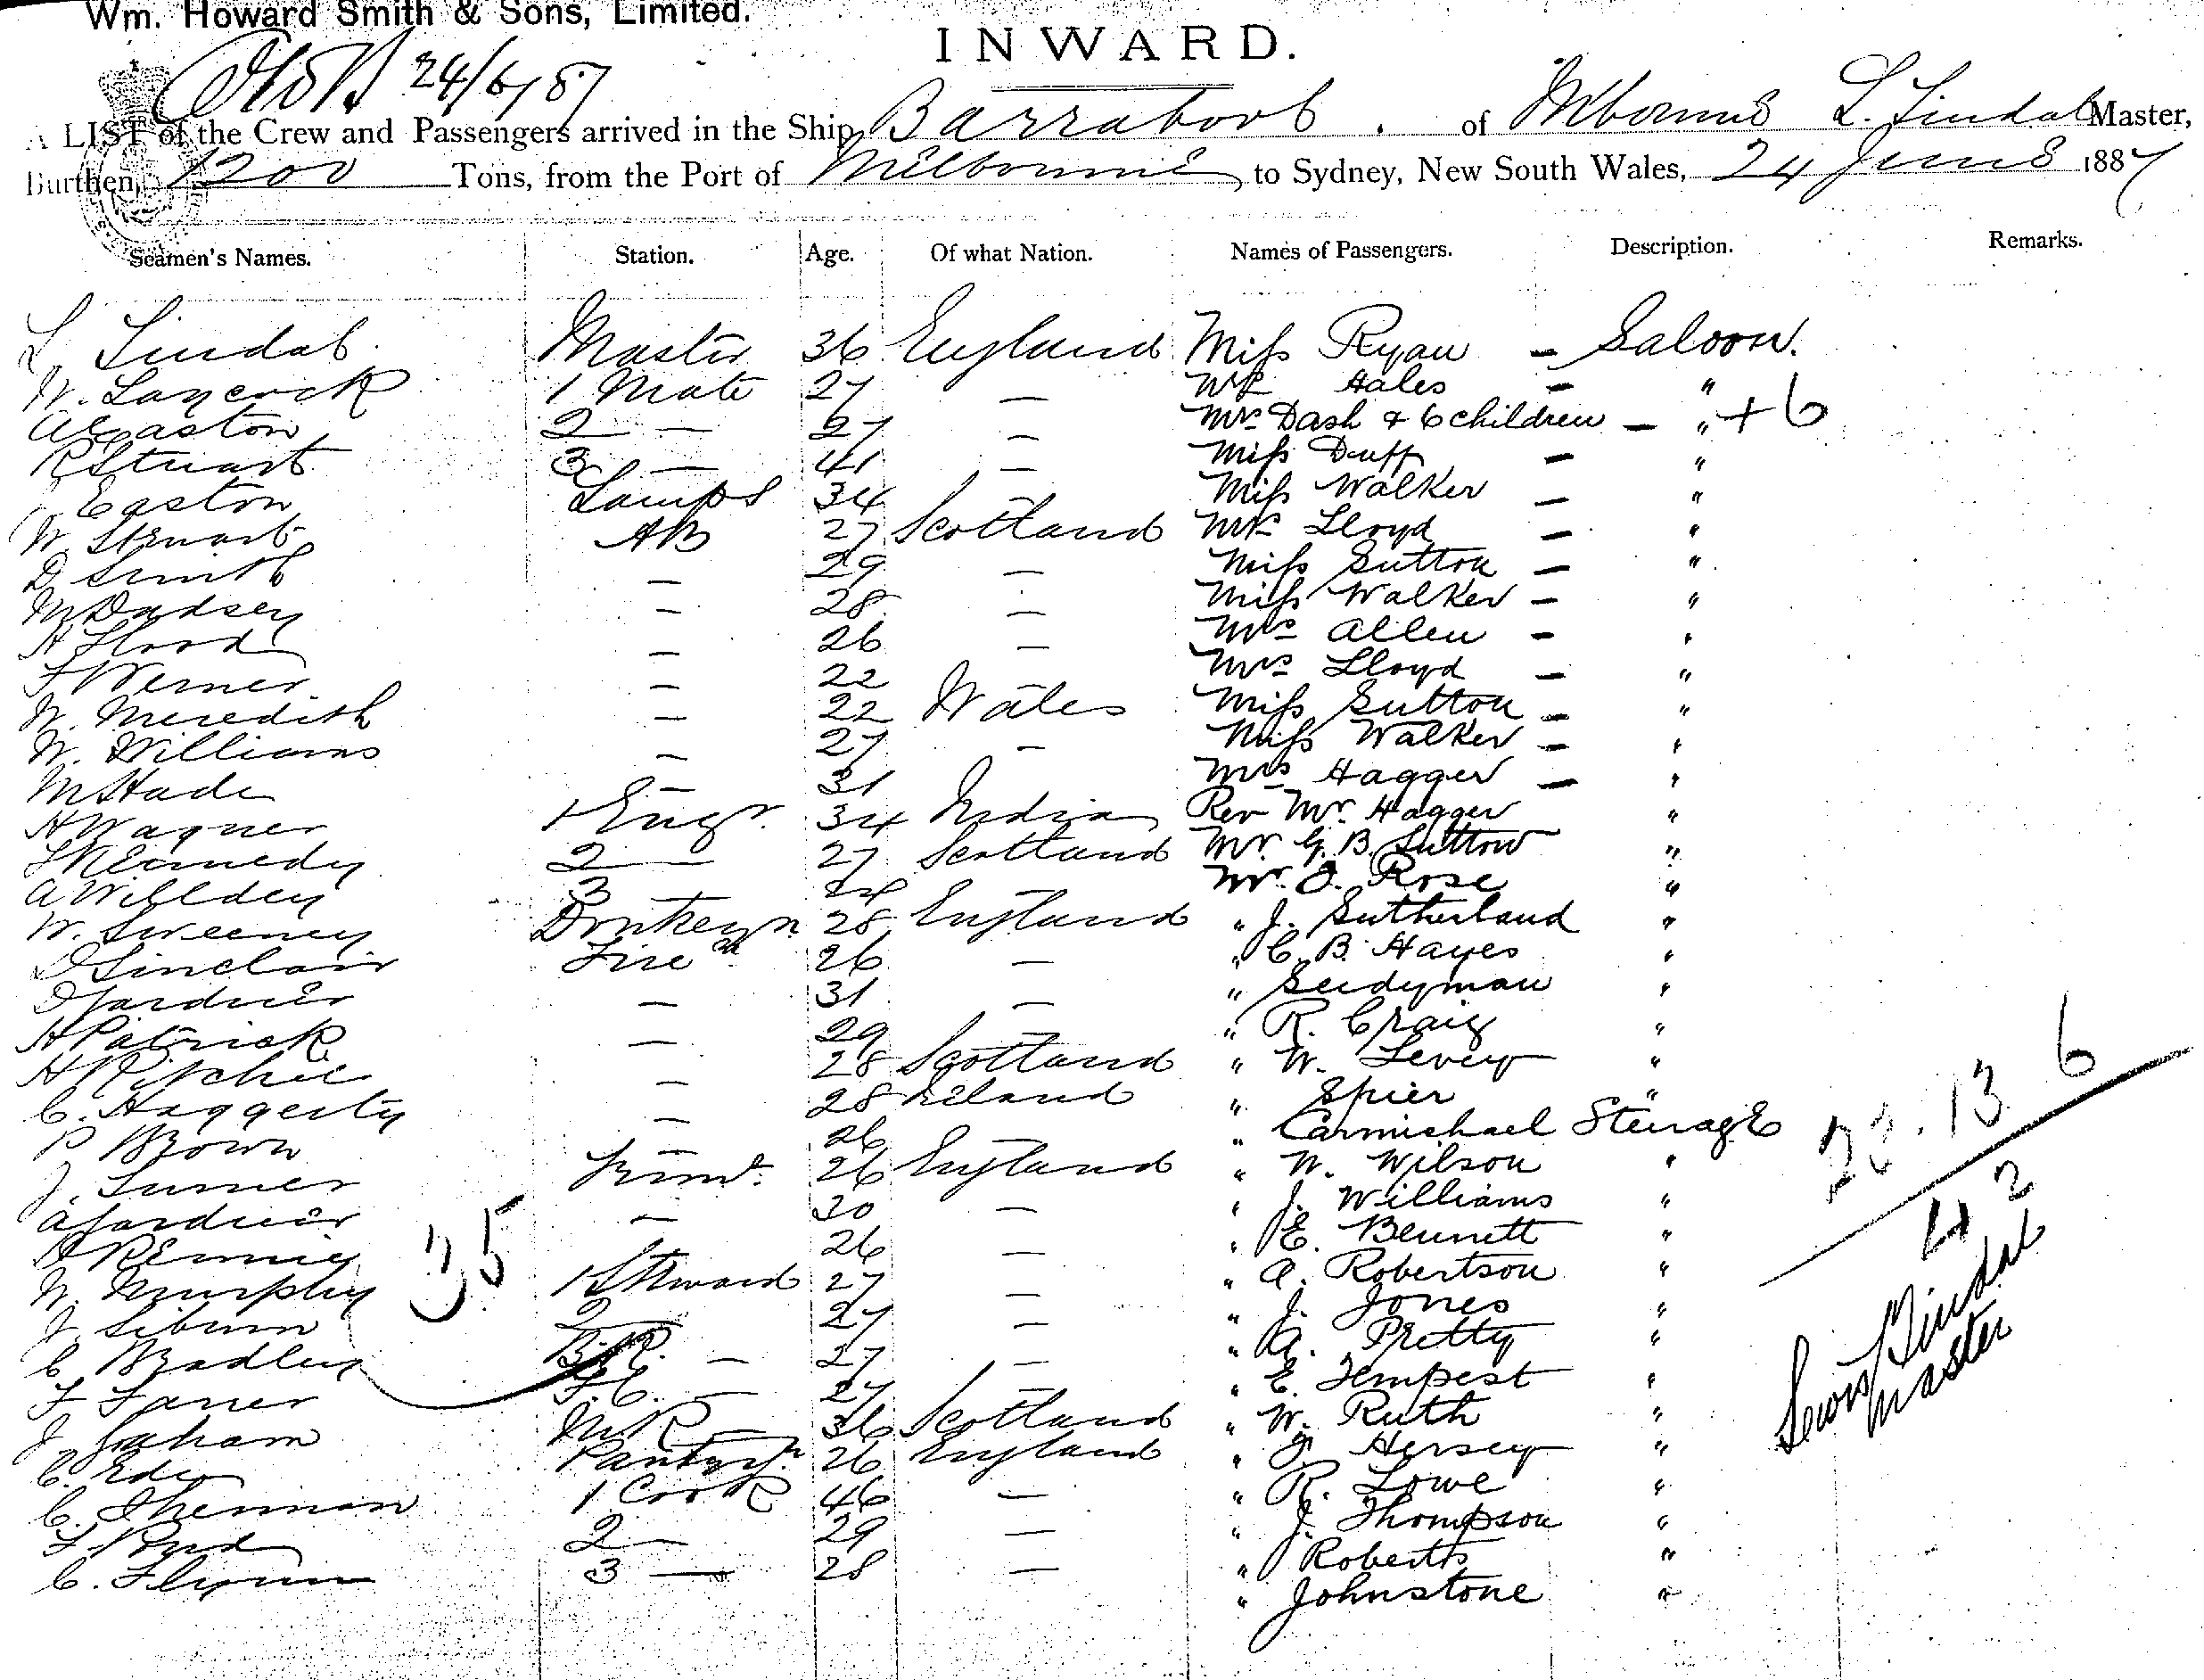 Wm. Howard Smith & Sons, Limited.
INWARD.
24/6/87
A LIST of the Crew and Passengers arrived in the Ship Barrabool of Melbourne L. Lindal Master,
Burthen 1200 Tons, from the Port of Melbourne to Sydney, New South Wales, 24 June 1887
Seamen's Names. Station. Age. Of what Nation. Names of Passengers. Description. Remarks.
L. Lindal Master 36 England Miss Ryan - Saloon.
W. Laycock 1 Mate 27 — Hales - "
A Easton 2 — 27 — Mrs Dash & 6 children - " + 6
R Stuart 3 — 41 — Miss Duff - "
Easton Lamps 34 — Miss Walker - "
W. Stewart AB 27 Scotland Lloyd - "
D Smith — 29 — Miss Sutton - "
M Dadsey — 28 — Miss Walker - "
H Flood — 26 — Mrs Allen - "
F Werner — 22 — Mrs Lloyd - "
W. Meredith — 22 Wales Miss Sutton - "
W. Williams — 27 — Miss Walker - "
M Hade — 31 — Mrs Hagger - "
H Wagner 1 Engr. 34 India Rev Mr. Hagger "
Kennedy 2 — 27 Scotland Mr. G. B. Sutton "
A Willdey 3 — 24 — Mr. J. Rose "
W. Sweeney Donkeyn 28 England " J. Sutherland "
D Sinclair Fire 26 — " C. B. Hayes "
D Gardner — 31 — " Seedyman "
H Patrick — 29 — " R. Craig "
H Ritchie — 28 Scotland " W. Levey "
C. Haggerty — 28 Ireland " Spier "
P Brown — 26 — " Carmichael Steerage
J. Turner Trimr. 26 England " W. Wilson "
A Gardner — 30 — " J. Williams "
Rennie 26 — " E. Bennett "
W. Murphy 1 Steward 27 — " A. Robertson "
J. Siburn 2 27 — " J. Jones "
C Bradley B.R. — 27 — " A. Pretty "
F Faner F.C. — 27 — " E. Tempest "
J Graham M R — 36 Scotland " W. Ruth "
C. Edey Pantryn 26 England " J. Hersey "
C. Sherman 1 Cook 46 — " R. Lowe "
F. 2 — 29 — " J. Thompson "
C. Flynn 3 — 28 — " Roberts "
" Johnstone "
35
23.13 6
42
Lewis Lindal
Master